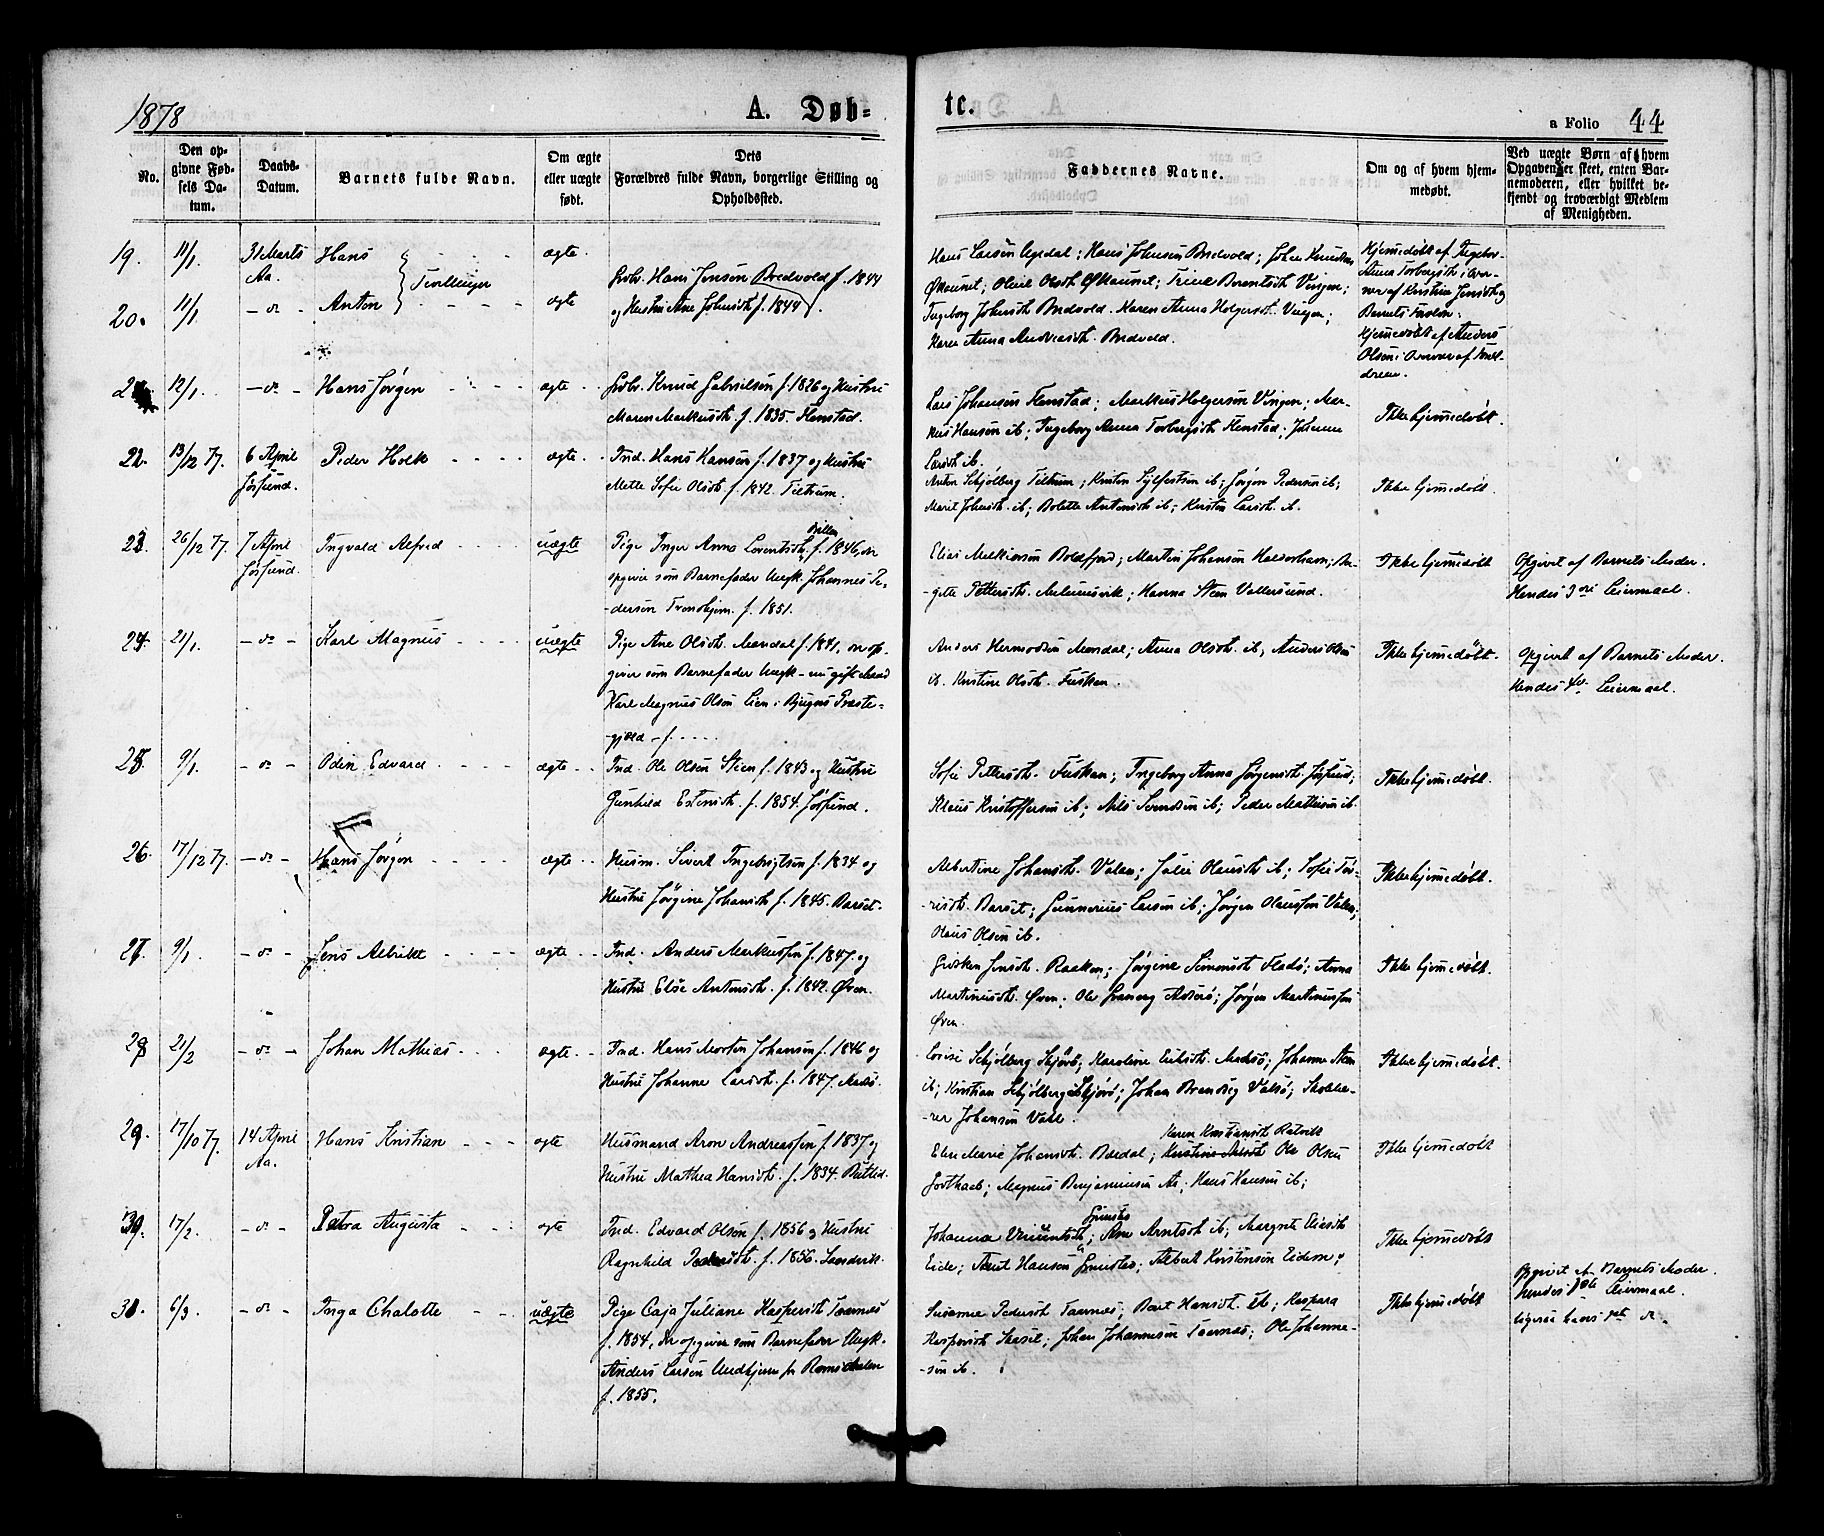 1878
A. Døb-
te.
a Folio 44
No.
Den op-
givne Fød-
sels Da-
tum.
Daabs-
Datum.
Barnets fulde Navn.
Om ægte
eller uægte
født.
Dets
Forældres fulde Navn, borgerlige Stilling og
Opholdssted.
Faddernes Navne.
Om og af hvem hjem-
medøbt.
Ved uægte Børn af hvem
Opgaven er skeet, enten Bar-
nemoderen, eller hvilket be-
kjendt og troværdigt Medlem
af Menigheden.
19. 11/1. 31 Marts Hans ægte.
Aa. Tvillinger
20. 11/1. - do - Anton ægte
Gbr. Hans Jensen Bredvold f. 1844
og Hustru Ane Johnsdt. f. 1844.
Hans Larsen Opdal; Hans Johnsen Bredvold; Johan Knudsen
Øhaunet; Oline Olsdt. Øhaunet; Trine Berentsdt. Vingen;
Ingeborg Johnsdt. Bredvold. Karen Anna Holgersdt. Vingen;
Karen Anna Andreasdt. Bredvold.
Hjemmedøbt af Ingebor-
Anna Torbergsdt. i Over-
vær af Kristine Jensdt. og
Barnets Forældre.
Hjemmedøbt af Anders
Olsen i Overvær af Foræl-
drene.
21. 12/1. - do - Hans Jørgen ægte
Gbr. Knud Gabrielsen f. 1826 og Hustru
Maren Markusdt. f. 1835. Henstad.
Lars Johansen Henstad; Markus Holgersen Vingen; Mar-
kus Hansen ib; Ingeborg Anna Torbergsdt. Henstad; Johanna
Larsdt. ib.
Ikke hjemmedøbt.
22. 13/12 77. 6 April Peder Holk ægte
Jøssund.
Ind. Hans Hansen f. 1837 og Hustru
Mette Sofie Olsdt. f. 1842. Teltrum.
Anton Schjølberg Teltrum; Kristen Sylfestsen ib; Jørgen Pedersen ib;
Marit Johnsdt. ib; Bolette Antonsdt. ib; Kirsten Larsdt. ib.
Ikke hjemmedøbt.
23. 26/12 77. 7 April Ingvald Alfred uægte
Jøssund.
Pige Inger Anna Lorentsdt. f. 1846, der
opgiver som Barnefader Ungk. Johannes Pe-
dersen Trondhjem. f. 1851.
Elias Melkiorsen Boldfjord; Martin Johansen Halvorhavn; Be-
-gitte Pettersdt. ; Hanna Steen Vallersund.
Ikke hjemmedøbt
Opgivet af Barnets Moder.
Hendes 3die Leiermaal.
24. 21/1. - do - Karl Magnus uægte
Pige Ane Olsdt. Mandal f. 1841, der op-
giver som Barnefader Ungk - en gift Mand
Karl Magnus Olsen Lien i Bjugns Præste-
-gjæld - f.
Anders Hermodsen Mandal; Anna Olsdt. ib, Anders Olsen
ib. Kristine Olsdt. Fuskan.
Ikke hjemmedøbt.
Opgivet af Barnets Moder.
Hendes 4de Leiermaal.
25. 9/1. - do - Odin Edvard ægte
Ind. Ole Olsen Steen f. 1843 og Hustru
Gunhild Estensdt. f. 1854. Jøssund.
Sofie Pettersdt. Fuskan; Ingeborg Anna Jørgensdt. Jøssund;
Klaus Kristoffersen ib; Nils Svendsen ib; Peder Mathisen ib
Ikke hjemmedøbt.
26. 17/12 77. - do - Hans Jørgen ægte
Husm. Sivert Ingebrigtsen f. 1834 og
Hustru Jørgine Johansdt. f. 1845. Barset.
Albertine Johansdt. Valan; Julie Olausdt. ib; Sofie Tør-
-risdt. Barset; Gunnerius Larsen ib; Jørgen Olaussen Valan;
Olaus Olsen ib.
Ikke hjemmedøbt.
27. 9/1. - do - Jens Albrikt ægte
Ind. Anders Markussen f. 1847. og
Hustru Else Antonsdt. f. 1842. Øren.
Gidsken Jensdt. Raaken; Jørgine Simonsdt. Fladø; Anna
Martinusdt. Øren; Ole Asserø; Jørgen Martinussen
Øren.
Ikke hjemmedøbt.
28. 21/2 - do - Johan Mathias ægte
Ind. Hans Morten Johansen f. 1846 og
Hustru Johanne Larsdt. f. 1847. Madsø.
Lovise Schjølberg Skjørø; Karoline Eriksdt. Madsø; Johanna Steen
ib; Kristian Schjølberg Skjørø; Johan Brandseg Valsø; Skolelæ-
-rer Johansen Valle.
Ikke hjemmedøbt.
29. 17/10 77. 14 April Hans Kristian ægte
Aa.
Husmand Aron Andreassen f. 1837 og
Hustru Mathea Hansdt. f. 1834.
Karen Kristiansdt. Ratvik
Elen Marie Johansdt. Bredal; Ole Olsen
Godthaab; Magnus Benjaminsen Aa; Hans Hansen ib;
Ikke hjemmedøbt
30. 17/2. - do - Petra Augusta ægte
Ind. Edvard Olsen f. 1856 og Hustru
Ragnhild Pedersdt. f. 1856. Sandvik.
Johanna Vincentsdt.; Ane Arntsdt. ib; Margrete Eliasdt.
Eide; Arnt Hansen ; Albert Kristensen Eidem;
Ikke hjemmedøbt
31. 6/3. - do - Inga Chalotte uægte
Pige Caja Juliane Kaspersdt. Taarnes
f. 1854, der opgiver som Barnefader Ungk.
Anders Larsen Undhjem fr. Romsdalen
f. 1855.
Susanne Pedersdt. Taarnes; Berit Hansdt. ib; Kaspara
Kaspersdt. ; Johan Johannesen Taarnes; Ole Johanne-
-sen ib.
Ikke hjemmedøbt
Opgivet af Barnets Moder.
Hendes 1ste Leiermaal.
ligesaa hans 1ste do.